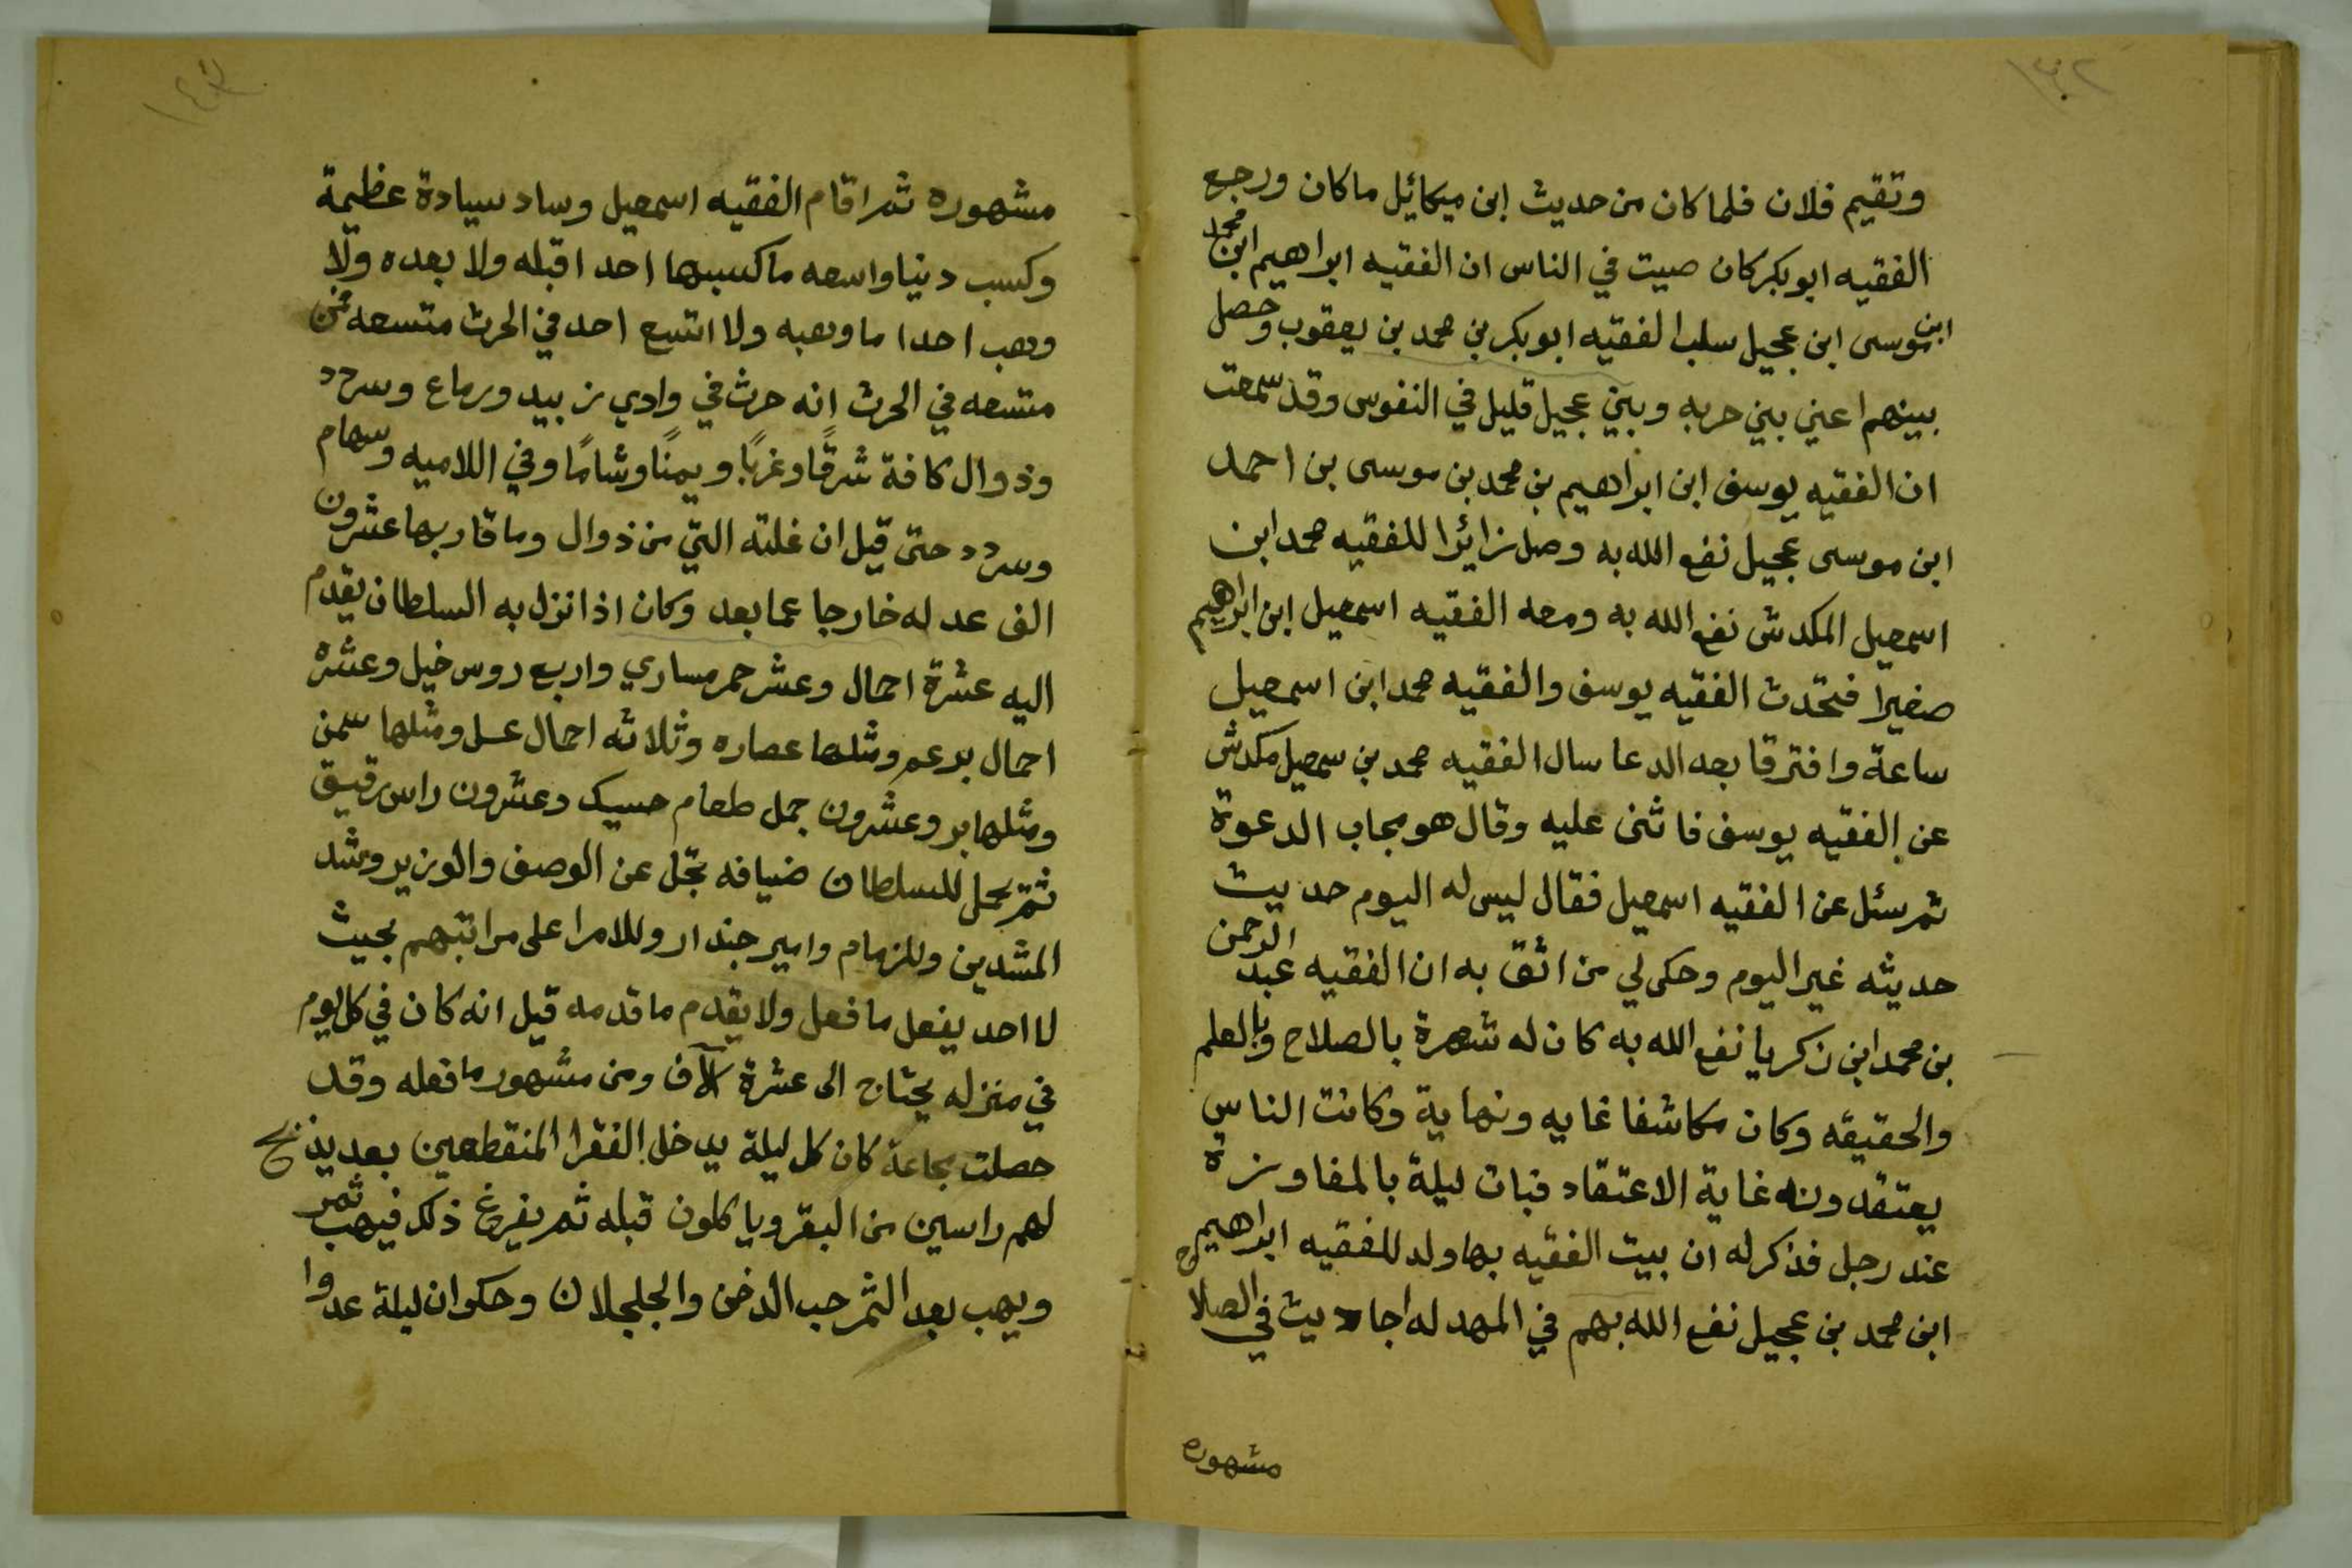 وتقيم فلان فلما كان من حديث ابن ميكائيل ماكان ورجع
الفقيه ابوبكر كان صيت في الناس ان الفقيه ابراهيم ابن محمد
ابن موسى ابن عجيل سلب الفقيه ابوبكر بن محمد بن يعقوب وحصل
بينهم اعني بين حربه وبين عجيل قليل في النفوس وقد سمعت
ان الفقيه يوسف ابن ابراهيم بن محمد بن موسى بن احمد
ابن موسى عجيل نفع الله به وصل زائرا للفقيه محمد ابن
اسمعيل المكدش نفع الله به ومعه الفقيه اسمعيل ابن ابراهيم
صغيرا فتحدث الفقيه يوسف والفقيه محمد ابن اسمعيل
ساعة وافترقا بعد الدعا سال الفقيه محمد بن سمعيل مكدش
عن الفقيه يوسف فاثنى عليه وقال هو مجاب الدعوة
ثم سئل عن الفقيه اسمعيل فقال ليس له اليوم حديث
حديثه غير اليوم وحكى لي من اثق به ان الفقيه عبد الرحمن
بن محمد ابن زكريا نفع الله به كان له شهرة بالصلاح وبالعلم
والحقيقه وكان مكاشفا غايه ونهاية وكانت الناس
يعتقدونه غاية الاعتقاد فبات ليلة بالمفاوزة
عند رجل فذكر له ان بيت الفقيه بها ولد للفقيه ابراهيم
ابن محمد بن عجيل نفع الله بهم في المهد له احاديث في الصلاح
مشهوره
مشهوره ثم اقام الفقيه اسمعيل وساد سيادة عظيمة
وكسب دنيا واسعه ما كسبها احدا قبله ولا بعده ولا
وهب احدا ما وهبه ولا اتسع احد في الحرث متسعه فمن
متسعه في الحرث انه حرث في وادي زبيد ورماع وسردد
وذوال كافة شرقًا وغربًا ويمنًا وشامًا وفي اللاميه وسهام
وسردد حتى قيل ان غلته التي من ذوال وما قاربها عشرون
الف عد له خارجا عما بعد وكان اذا نزل به السلطان يقدم
اليه عشرة احمال وعشر حمر مساري واربع روس خيل وعشرة
احمال برعم ومثلها عصاره وثلاثه احمال عسل ومثلها سمن
ومثلها بر وعشرون جمل طعام حسيك وعشرون راس رقيق
ثم يحمل للسلطان ضيافه تجل عن الوصف والوزير وشد
المشدين وللزمام وامير جندار وللامرا على مراتبهم بحيث
لا احد يفعل ما فعل ولا يقدم ما قدمه قيل انه كان في كل يوم
في منزله يحتاج الى عشرة آلاف ومن مشهور ما فعله وقد
حصلت مجاعة كان كل ليلة يدخل الفقرا المنقطعين بعد يذبح
لهم راسين من البقر وياكلون قبله ثم يفرغ ذلك فيهب ثمر
ويهب بعد الثمر حب الدخن والجلجلان وحكوا ان ليلة عدوا